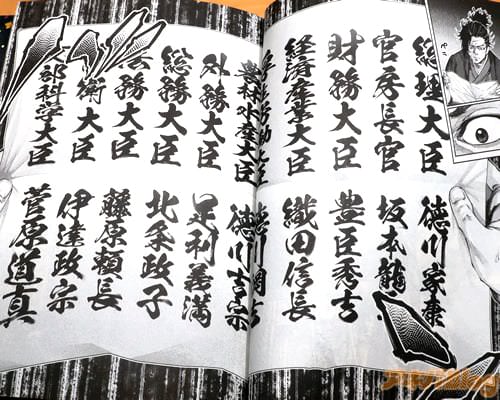 総理大臣
徳川家康
官房長官
坂本龍
財務大臣
豊臣秀吉
経済産業大臣
織田信長
労働大臣
徳川綱吉
農林水産大臣
徳川吉宗
外務大臣
足利義満
総務大臣
北条政子
務大臣
藤原頼長
衛大臣
伊達政宗
部科学大臣
菅原道真
アキバBlog